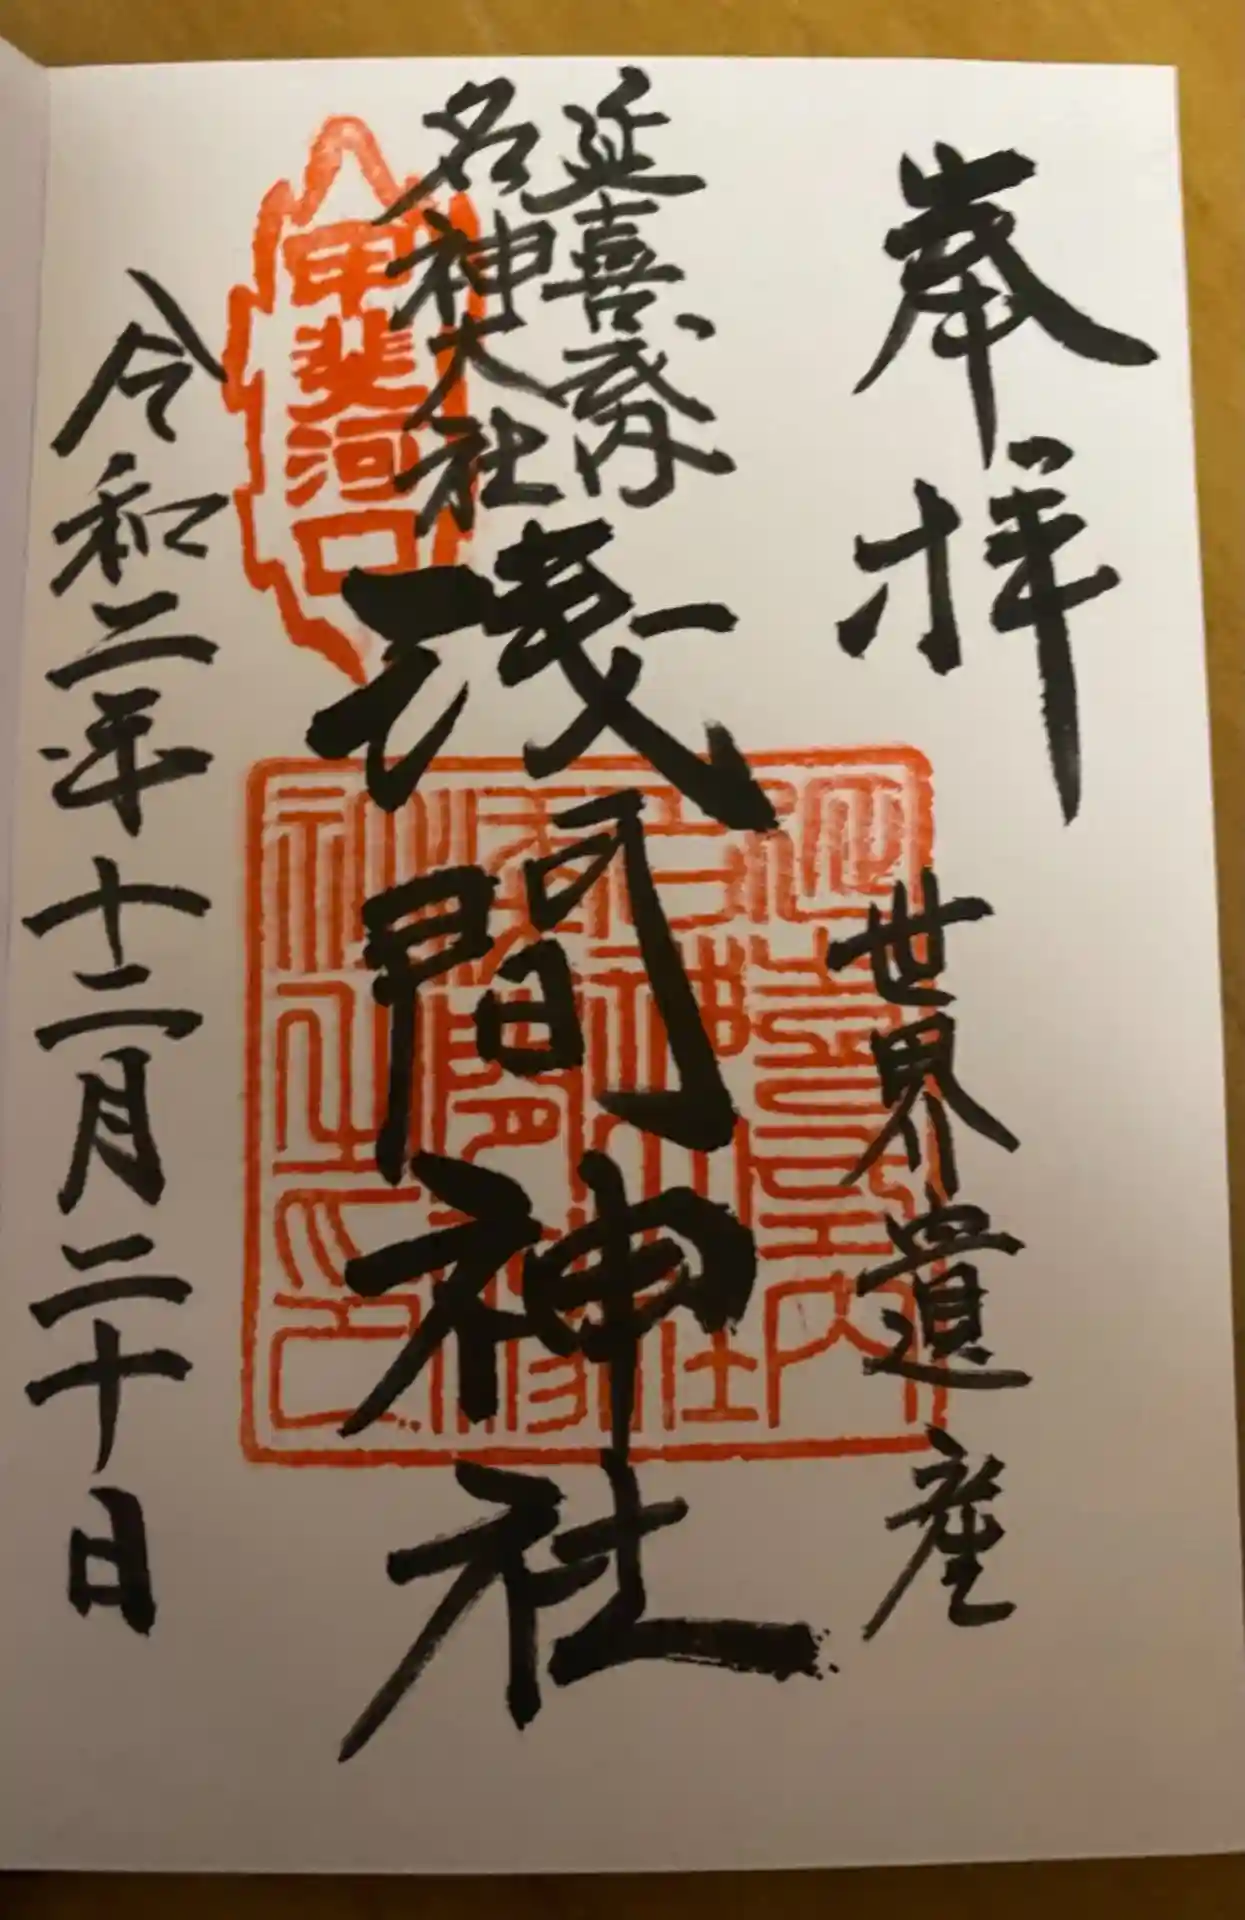 奉拝
世界遺産
延喜式内
名神大社
浅間神社
甲斐河口
令和二年十二月二十日